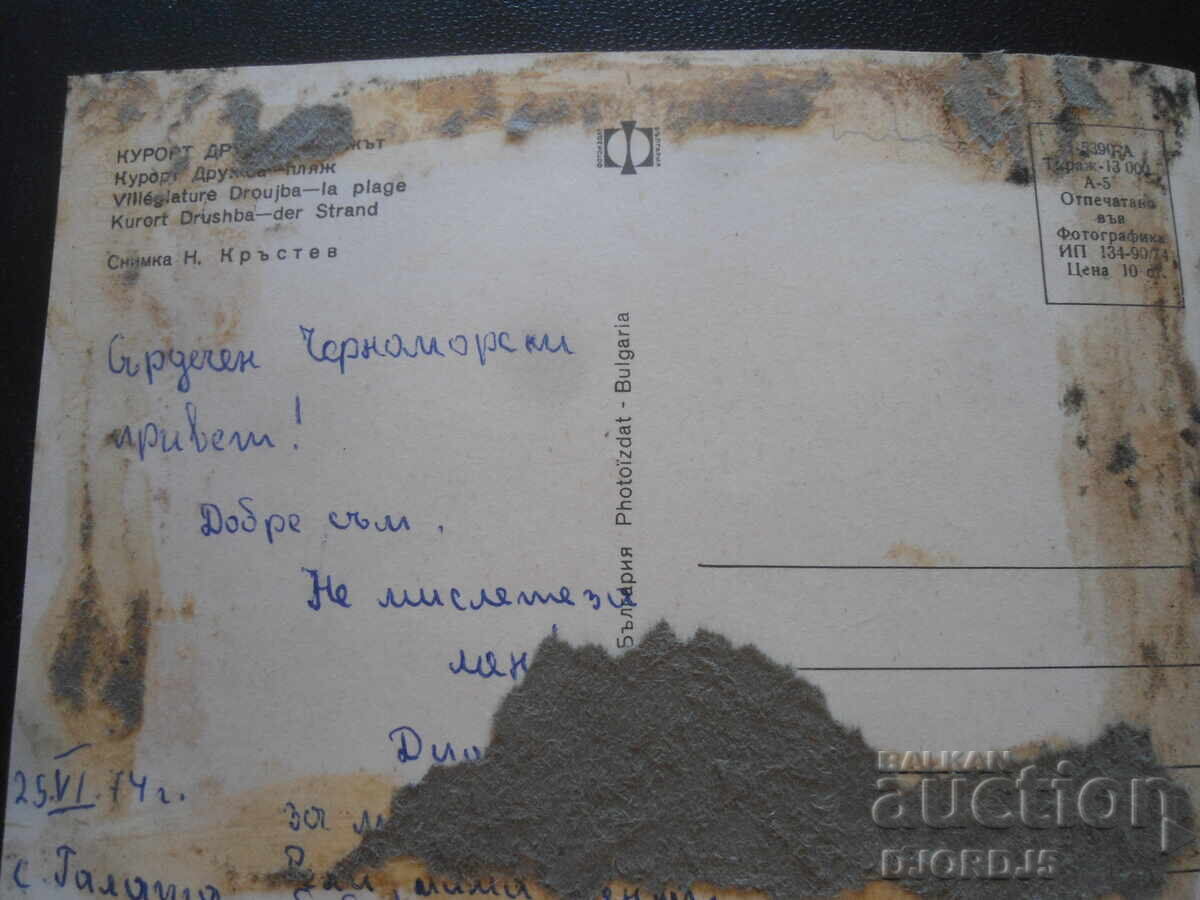 КУРОРТ
Курорт Дружба—пляж
Villégiature Droujba—la plage
Kurort Drushba—der Strand
Снимка Н. Кръстев
Тираж-13 000
А-5
Отпечатано
във
Фотографика
ИП 134-90/74
Цена 10 ст.
България Photoïzdat - Bulgaria
Сърдечен Черноморски
привет!
Добре съм.
Не мислете за
мен
25.VI.74 г.
за
с. Галата
BALKAN
auction
DJORDJ5